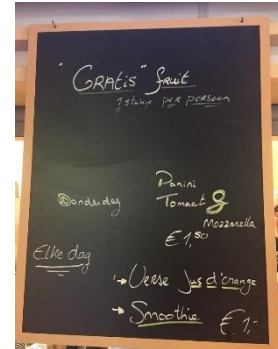 "GRATIS" fruit
1 stukje per persoon
Donderdag
Panini
Tomaat &
Mozzarella
€ 1,50
Elke dag
→ Verse Jus d'orange
→ Smoothie € 1,-